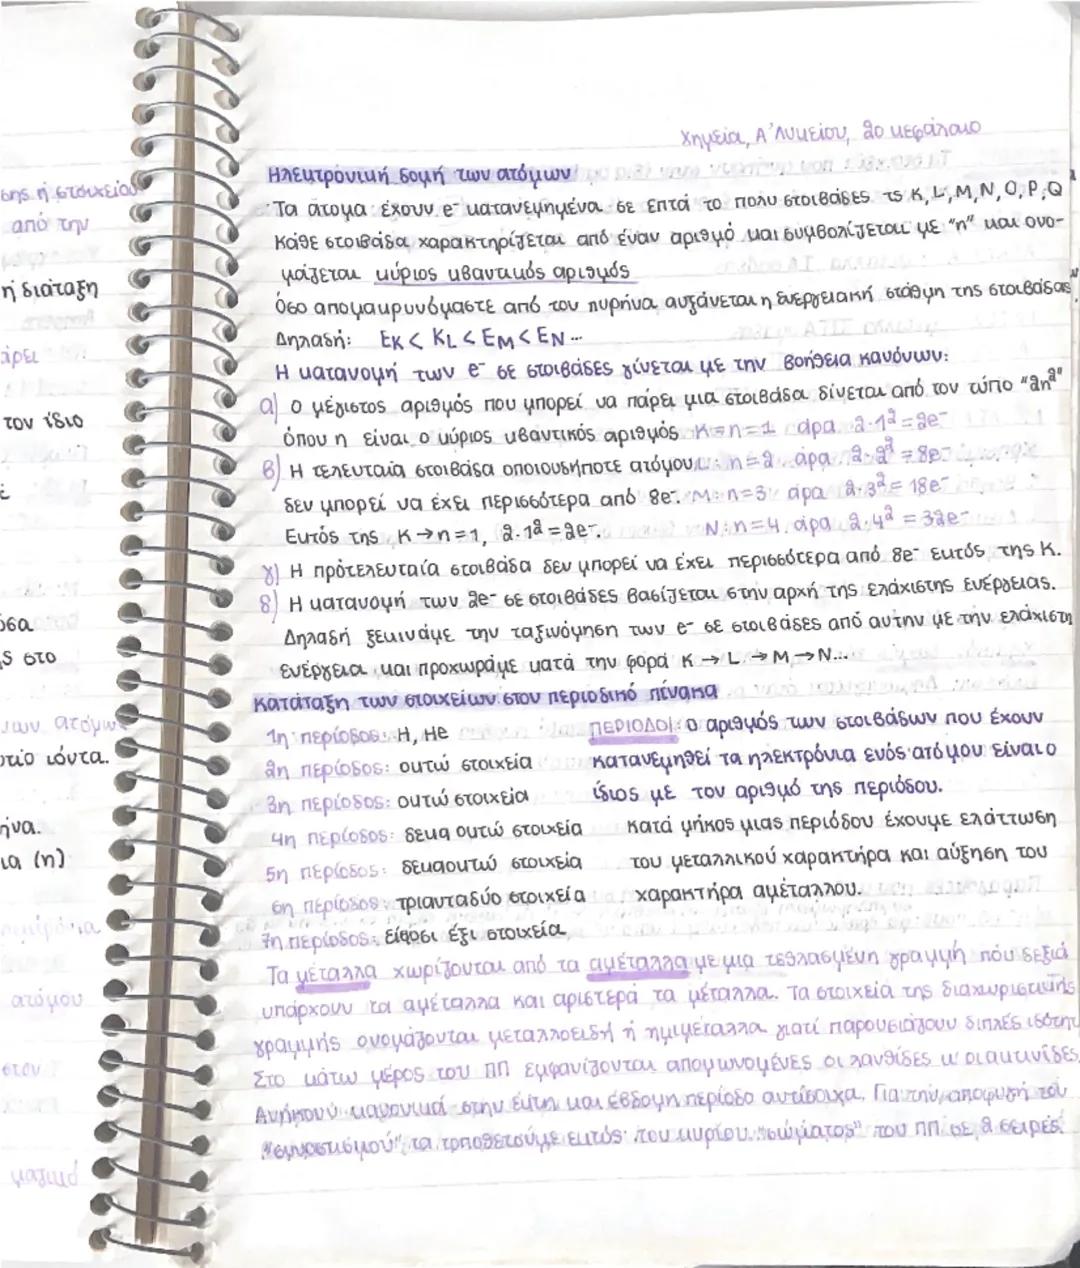 Χημεία, Α' Λυκείου, 2ο κεφάλαιο
Ηλεκτρονική δομή των ατόμων
Τα άτομα έχουν e⁻ κατανεμημένα σε επτά το πολύ στοιβάδες τς K, L, M, N, O, P, Q
Κάθε στοιβάδα χαρακτηρίζεται από έναν αριθμό και συμβολίζεται με "n" και ονο-
μαίζεται κύριος κβαντικός αριθμός
Όσο απομακρυνόμαστε από τον πυρήνα αυξάνεται η ενεργειακή στάθμη της στοιβάδας
Δηλαδή: EK < KL < EM < EN ...
Η κατανομή των e⁻ σε στοιβάδες γίνεται με την βοήθεια κανόνων:
α) ο μέγιστος αριθμός που μπορεί να πάρει μια στοιβάδα δίνεται από τον τύπο "2n²"
όπου η είναι ο κύριος κβαντικός αριθμός K=n=1 άρα 2·1²=2e⁻
β) Η τελευταία στοιβάδα οποιουδήποτε ατόμου L: n=2 άρα 2·2²=8e⁻
δεν μπορεί να έχει περισσότερα από 8e⁻. M: n=3 άρα 2·3²=18e⁻
Εκτός της K→n=1, 2·1²=2e⁻. N: n=4 άρα 2·4²=32e⁻
γ) Η πρότελευταία στοιβάδα δεν μπορεί να έχει περισσότερα από 8e⁻ εκτός της K.
δ) Η κατανομή των 2e⁻ σε στοιβάδες βασίζεται στην αρχή της ελάχιστης ενέργειας.
Δηλαδή ξεκινάμε την ταξινόμηση των e⁻ σε στοιβάδες από αυτήν με την ελάχιστη
ενέργεια και προχωράμε κατά την φορά K→L→M→N...
Κατάταξη των στοιχείων στον περιοδικό πίνακα
1η περίοδος: H, He ΠΕΡΙΟΔΟΙ: ο αριθμός των στοιβάδων που έχουν
2η περίοδος: οκτώ στοιχεία κατανεμηθεί τα ηλεκτρόνια ενός ατόμου είναι ο
3η περίοδος: οκτώ στοιχεία ίδιος με τον αριθμό της περιόδου.
4η περίοδος: δεκα οκτώ στοιχεία κατά μήκος μιας περιόδου έχουμε ελάττωση
5η περίοδος: δεκαοκτώ στοιχεία του μεταλλικού χαρακτήρα και αύξηση του
6η περίοδος: τριανταδύο στοιχεία χαρακτήρα αμέταλλου.
7η περίοδος: είκοσι έξι στοιχεία
Τα μέταλλα χωρίζονται από τα αμέταλλα με μια τεθλασμένη γραμμή που δεξιά
υπάρχουν τα αμέταλλα και αριστερά τα μέταλλα. Τα στοιχεία της διαχωριστικής
γραμμής ονομάζονται μεταλλοειδή ή ημιμέταλλα γιατί παρουσιάζουν διπλές ιδότητ
Στο κάτω μέρος του ΠΠ εμφανίζονται απομονωμένες οι λανθίδες κ' οι ακτινίδες.
Ανήκουν κανονικά στην έκτη και έβδομη περίοδο αντίστοιχα. Για την αποφυγή του
τα τοποθετούμε εκτός του κυρίου "σώματος" του ΠΠ σε 2 σειρές.
σης ή στοιχείου
από την
η διάταξη
άρει
τον ίδιο
ς στο
των ατόμων
ιόντα.
ήνα.
ια (n)
ατόμου
στον